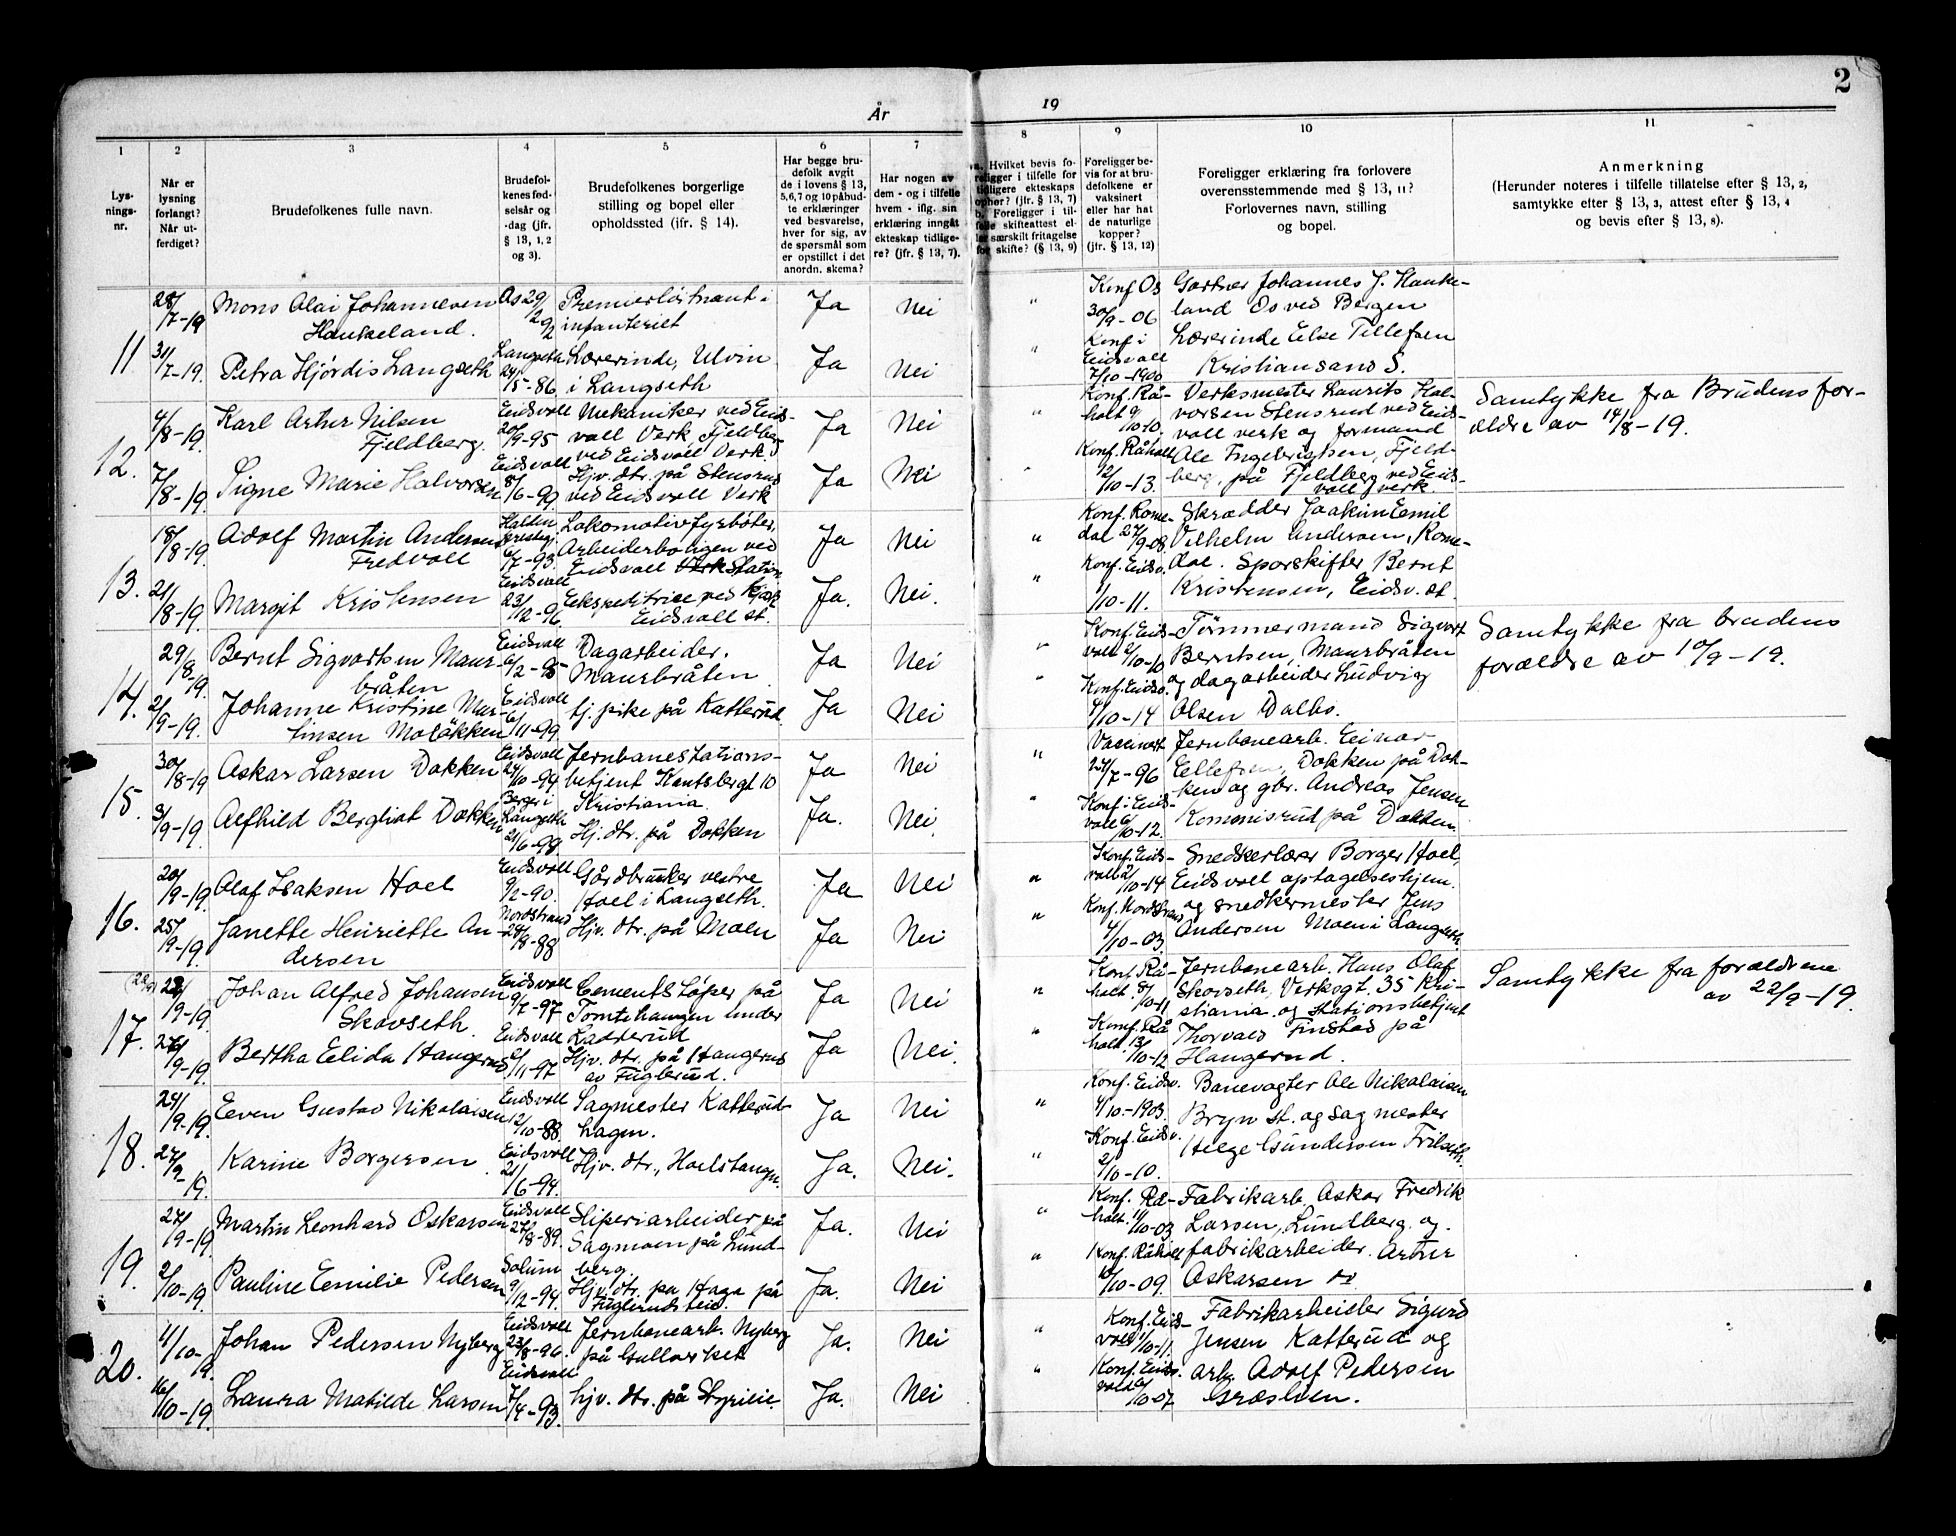 2
År
19
1
2
3
4
5
6
7
8
9
10
11
Lys-
nings-
nr.
Når er
lysning
forlangt?
Når ut-
ferdiget?
Brudefolkenes fulle navn.
Brudefol-
kenes fød-
selsår og
-dag (jfr.
§ 13, 1, 2
og 3).
Brudefolkenes borgerlige
stilling og bopel eller
opholdssted (jfr. § 14).
Har begge bru-
defolk avgit
de i lovens § 13,
5,6,7 og 10 påbud-
te erklæringer
ved besvarelse,
hver for sig, av
de spørsmål som
er opstillet i det
anordn. skema?
Har nogen av
dem - og i tilfelle
hvem - iflg. sin
erklæring inngått
ekteskap tidlige-
re? (jfr. § 13, 7).
a. Hvilket bevis fo-
religger i tilfelle for
tidligere ekteskaps
ophør? (jfr. § 13, 7)
b. Foreligger i til-
felle skifteattest el-
ler særskilt fritagelse
for skifte? (§ 13, 9)
Foreligger be-
vis for at bru-
defolkene er
vaksinert
eller har hat
de naturlige
kopper?
(jfr. § 13, 12)
Foreligger erklæring fra forlovere
overensstemmende med § 13, 11?
Forlovernes navn, stilling
og bopel.
Anmerkning
(Herunder noteres i tilfelle tillatelse efter § 13, 2,
samtykke efter § 13, 3, attest efter § 13, 4
og bevis efter § 13, 8).
11
28/
7-19
Mons Olai Johannesen
Haukeland.
Os 29/
Premierløitnant i
infanteriet
Ja
Nei
"
Konf Os
30/9-06
Gartner Johannes J. Hauke-
land Os ved Bergen
31/
7-19.
Petra Hjördis Langseth
Langseth
24/
5-86
Lærerinde, Ulvin
i Langseth
Ja
Nei
"
Konf i
Eidsvoll
7/10-1900
Lærerinde Else Tellefsen
Kristiansand S.
12.
4/
8-19.
Karl Artur Nilsen
Fjeldberg.
Eidsvoll
20/
9-95
Mekaniker ved Eids-
voll Verk, Fjeldberg
ved Eidsvoll Verk.
Ja
Nei
"
Konf. Rå-
holt 9/
10-10.
Verksmester Laurits Hal-
vorsen Stensrud ved Eids-
voll verk og formand
Samtykke fra Brudens for-
ældre av 14/8-19.
7/
8-19.
Signe Marie Halvorsen
Eidsvoll
8/
6-99
Hjv. dtr. på Stensrud
ved Eidsvoll Verk
Ja
Nei
Konf. Råholt
12/
10-13.
Ole Ingebrigtsen, Fjeld-
berg, på Fjeldberg ved Eids-
voll verk.
13.
18/
8-19.
Adolf Martin Andersen
Fredvoll
6/
7-93.
Lokomotivfyrbøter,
Arbeiderboligen ved
Eidsvoll Verk Station
Ja
Nei
"
Konf. Rome-
dal 27/
9-08.
Skrædder Joakim Emil
Vilhelm Andersen, Rome-
dal. Sporskifter Bernt
21/
8-19.
Margit Kristensen
Eidsvoll
23/
12-96.
Ekspeditrice ved
Eidsvoll st.
Ja.
Nei.
"
Konf. Eidsv.
1/
10-11.
Kristensen, Eidsv. st.
14.
29/
8
19.
Bernt Sigvartsen Maur-
bråten
Eidsvoll
6/
2-95
Dagarbeider.
Maurbråten
Ja
Nei
"
Konf. Eids-
voll 2/
10-10
Tømmermand Sigvart
Berntsen, Maurbråten
Samtykke fra brudens
forældre av 10/9-19.
2/
9-19.
Johanne Kristine Mar-
tinsen Moløkken
Eidsvoll
6/
11-99.
tj. pike på Katterud.
Ja
Nei
"
Konf. Eidsv.
4/
10-14
og dagarbeider Ludvig
Olsen Dalbo.
15.
30/
8-19
Oskar Larsen Dokken
Eidsvoll
24/
10-94
Jernbanestations-
betjent Knutsbergt 10
Kristiania.
Ja
Nei
"
Vaccinert
24/
7-96
Jernbanearb. Einar
Ellefsen, Dokken på Dok-
3/
9-19.
Alfhild Bergliot Dokken
Berger i
Langseth
21/
6-98.
Hj. dtr. på Dokken
Ja.
Nei.
"
Konf. i Eids-
voll 6/
10-12.
ken og gbr. Andreas Jensen
Kommisrud på Dokken.
16.
20/
9-19.
Olaf Isaksen Hoel
Eidsvoll
9/
2-90.
Gårdbruker vestre
Hoel i Langseth.
Ja
Nei
"
Konf. Eids-
voll 2/
10-14
Snedkerlærer Borger Hoel,
Eidsvoll optagelseshjem.
25/
9-19.
Janette Henriette An
dersen
Nordstrand
28/
8-88
Hjv. dtr. på Moen
Ja
Nei
"
Konf. Nordstrand
4/
10-03
og snedkermester Jens
Andersen Moen i Langseth.
17.
22/
9-19.
Johan Alfred Johansen
Skovseth.
Eidsvoll
9/
7-97
Cementstøper på
Tomtehaugen under
Katterud
Ja
Nei
"
Konf. Rå-
holt. 8/
10-11
Jernbanearb. Hans Olaf
Skovseth, Verksgt. 35 Kri-
stiania og stationsbetjent
Samtykke fra forældrene
av 22/9-19.
26/
9-19.
Bertha Elida Hangerud
Eidsvoll
6/
11-97.
Hjv. dtr. på Hangerud
av Fuglerud.
Ja
Nei.
"
Konf. Rå
holt. 13/
10-12
Thorvald Finstad på
Hangerud.
18.
24/
9-19.
Even Gustav Nikolaisen
Eidsvoll
12/
10-88.
Sagmester Katterud-
hagen.
Ja
Nei
"
Konf. Eidsv.
4/10-1903.
Banevogter Ole Nikolaisen
Bryn st. og sagmester
27/
9-
19.
Karine Borgersen
Eidsvoll
21/
6-94.
Hjv. dtr., Hoelstangen.
Ja.
Nei.
"
Konf. Eidsv.
2/
10-10.
Helge Gundersen Frilseth.
19.
27/
9-19.
Martin Leonhard Oskarsen
Eidsvoll
27/
8-89.
Sliperiarbeider på
Sagmoen på Lund-
berg.
Ja.
Nei
"
Konf. Rå-
holt. 11/
10-03
Fabrikarb. Oskar Fredrik
Larsen, Lundberg. og
2/
10-19.
Pauline Emilie Pedersen
Solum
9/
12-94.
Hjv. dtr. på Haga på
Fuglerudseie.
Ja.
Nei
"
Konf. Råholt
10/
10-09.
fabrikarbeider. Artur
Oskarsen
20.
4/
10-
19.
Johan Pedersen Nyberg
Eidsvoll
23/
8-96.
Jernbanearb. Nyberg
på Gullverket
Ja.
Nei
"
Konf. Eids-
voll 1/
10-11.
Fabrikarbeider Sigurd
Jensen Katterud og
16/
10-19.
Laura Matilde Larsen
Eidsvoll
7/
4-93.
hjv. dtr. på Styrilie.
Ja.
Nei
"
Konf. Eids-
voll 6/
10-07
arb. Adolf Pedersen
Græslien.